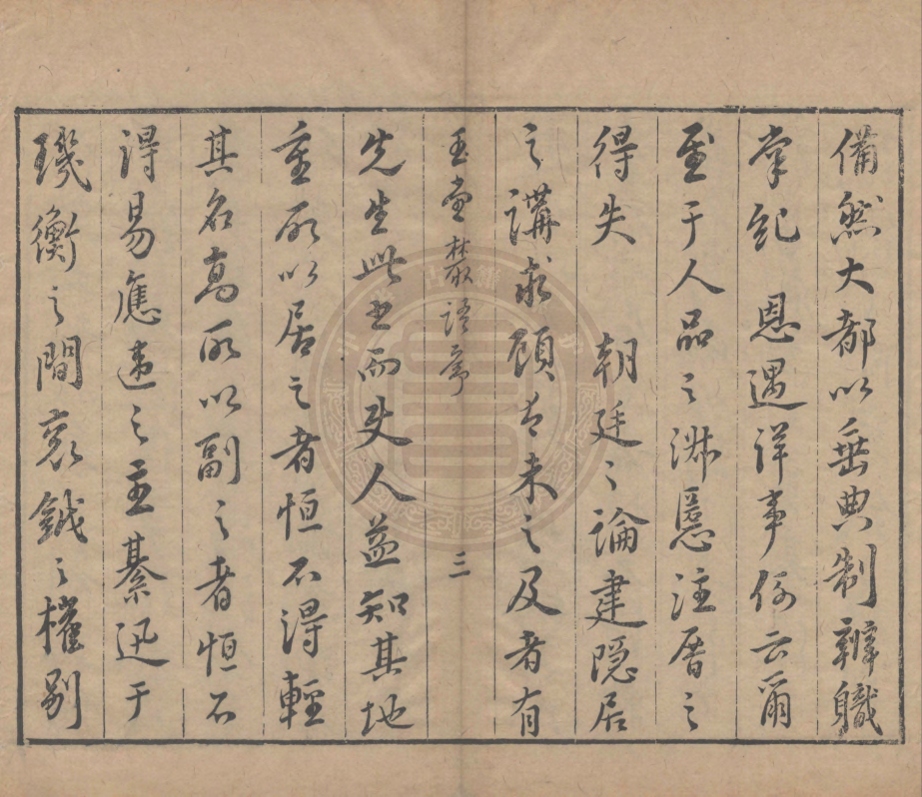 備然大都以垂典制辨職
掌紀 恩遇詳事例云爾
至于人品之淑慝注厝之
得失 朝廷之論建隱居
之講求顧未之及者有
玉堂叢語序 三
先生此書而史人益知其地
重所以居之者恒不得輕
其名高所以副之者恒不
得易應違之主綦迅于
璣衡之間袞鉞之權別